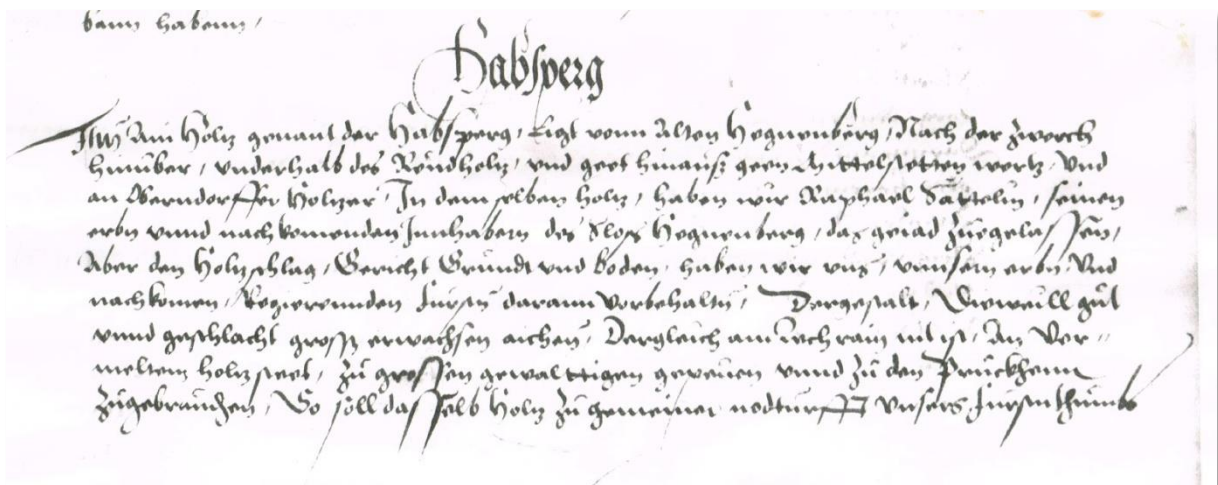 bann habenn,
Habsperg
Item Ain Holtz genant der Habsperg, Ligt vonn Alten Hegnenberg, Nach der zwerch
hinuber, vnderhalb des Rondholtz, vnd geet hinauß geen Mittelstetten wertz, Vnd
an Oberndorffer Höltzer, In dem selben holtz, haben wir Raphael Sättelin, seinen
erbn vnnd nachkomenden Innhabern des Slos Hegnenberg, das geiad zuegelassen,
Aber den Holtzschlag, Gericht Grundt vnd boden, haben wir vns, vnnsern erbn, Vnd
nachkomen, Regierennden Fürstn darann Vorbehaltn, Dergestalt, Dieweill gut
vnnd geschlacht gross erwachsen aichen, Dergleich am Lechrain nit ist, An Ver-
meltem holtz steet, zu grossen gewalttigen gepeuen vnnd zu den Pruckhenn
zugebrauchen, So soll dasselb Holtz zu gemeiner nodturfft vnsers Fürstnthumbs